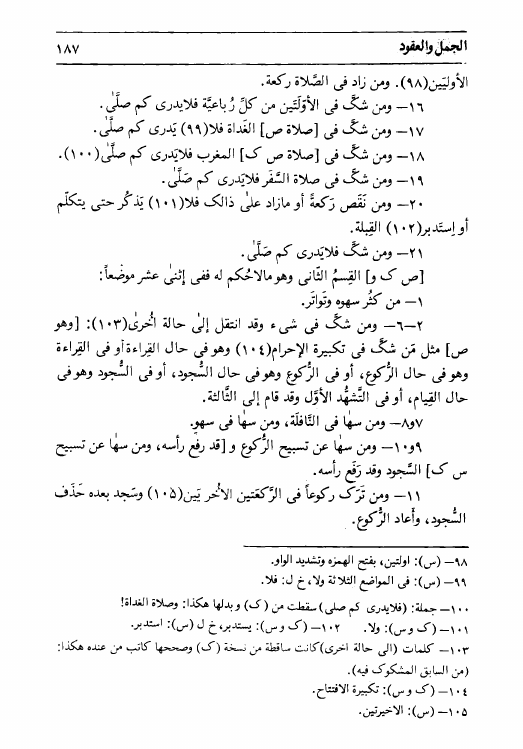 الجمل والعقود ١٨٧
الأوليّين(٩٨). ومن زاد فى الصَّلاة ركعة.
١٦– ومن شكّ فى الأوّلتين من كلّ رُباعيَّة فلايدرى كم صلَّىٰ.
١٧– ومن شكَّ فى [صلاة ص] الغداة فلا(٩٩) يَدرى كم صلَّىٰ.
١٨– ومن شكّ فى [صلاة ص ك] المغرب فلايَدرى كم صلَّىٰ(١٠٠).
١٩– ومن شكَّ فى صلاة السَّفَر فلايَدرى كم صَلَّىٰ.
٢٠– ومن نَقَص رَكعةً أو مازاد علىٰ ذالك فلا(١٠١) يَذكُر حتى يتكلّم
أو إستَدبر(١٠٢) القِبلة.
٢١– ومن شكَّ فلايَدرى كم صَلَّىٰ.
[ص ك و] القِسمُ الثّانى وهو مالاحُكم له ففى إثنىٰ عشر موضعاً:
١– من كثُر سهوه وتَواتَر.
٢–٦– ومن شكَّ فى شىء وقد انتقل إلىٰ حالة اُخرىٰ(١٠٣): [وهو
ص] مثل مَن شكَّ فى تكبيرة الإحرام(١٠٤) وهو فى حال القِراءة أو فى القِراءة
وهو فى حال الرُّكوع، أو فى الرُّكوع وهو فى حال السُّجود، أو فى السُّجود وهو فى
حال القيام، أو فى التَّشهُّد الأوَّل وقد قام إلى الثَّالثة.
٧و٨– ومن سهَا فى النَّافلة، ومن سهَا فى سهوٍ.
٩و١٠– ومن سهٰا عن تسبيح الرُّكوع و [قد رفع رأسه، ومن سهٰا عن تسبيح
س ك] السُّجود وقد رَفَع رأسه.
١١– ومن تَرَك ركوعاً فى الرَّكعَتين الاُخريَين(١٠٥) وسَجد بعده حَذَف
السُّجود، وأعاد الرُّكوع.
٩٨– (س): اولتين، بفتح الهمزه وتشديد الواو.
٩٩– (س): فى المواضع الثلاثة ولا، خ ل: فلا.
١٠٠– جملة: (فلايدرى كم صلى) سقطت من (ك) و بدلها هكذا: وصلاة الغداة!
١٠١– (ك و س): ولا. ١٠٢– (ك و س): يستدبر، خ ل (س): استدبر.
١٠٣– كلمات (الى حالة اخرى) كانت ساقطة من نسخة (ك) وصححها كاتب من عنده هكذا:
(من السابق المشكوك فيه).
١٠٤– (ك و س): تكبيرة الافتتاح.
١٠٥– (س): الاخيرتين.